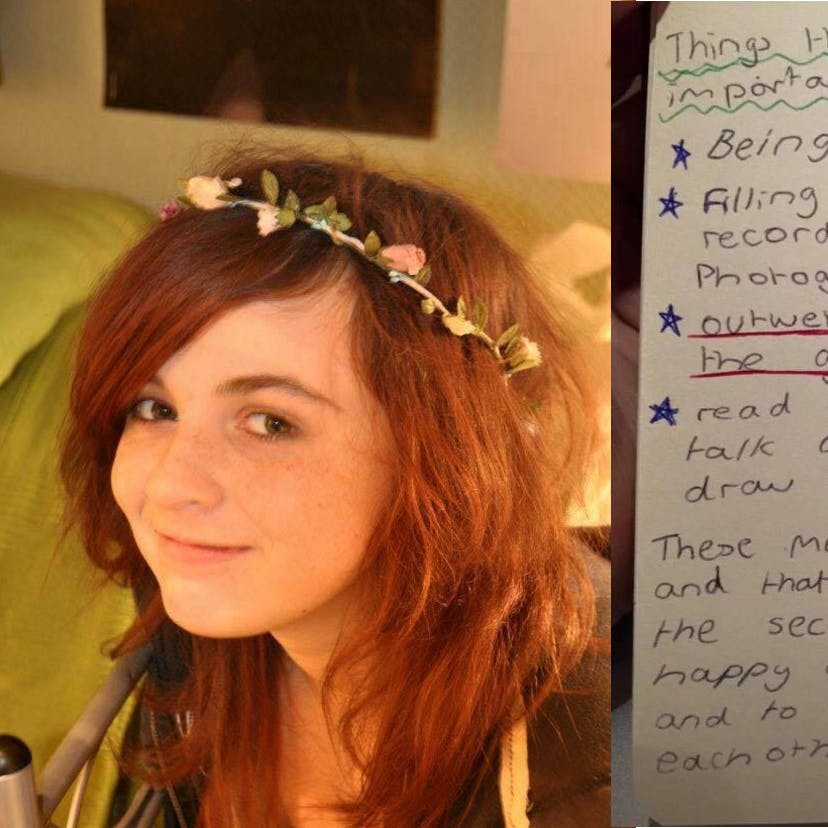 Things
importa
Being
Filling
record
Photog
outwe
the g
read
talk
draw
These m
and that
the sec
happy
and to
eachoth